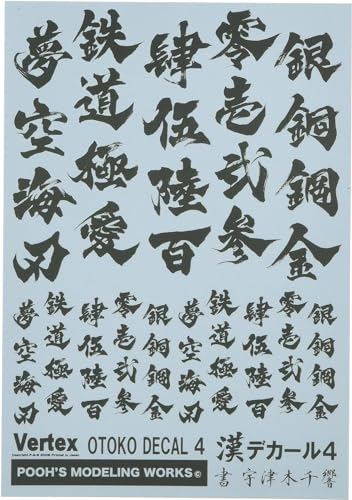 銀銅鋼金
零壱弐参
肆伍陸百
鉄道極愛
夢空海刃
銀銅鋼金
零壱弐参
肆伍陸百
鉄道極愛
夢空海刃
銀銅鋼金
零壱弐参
肆伍陸百
鉄道極愛
夢空海刃
Vertex OTOKO DECAL 4 漢デカール4
POOH'S MODELING WORKS©
書 宇津木千響